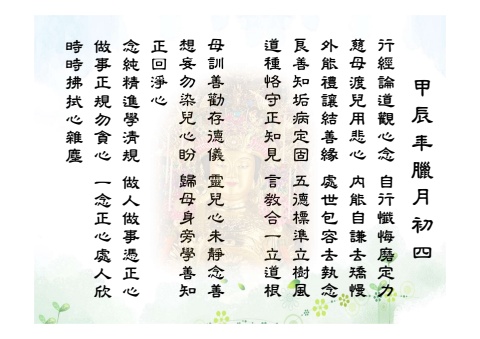 甲辰年臘月初四
行經論道觀心念 自行懺悔磨定力
慈母渡兒用悲心 內能自謙去矯慢
外能禮讓結善緣 處世包容去執念
良善知垢病定固 五德標準立樹風
道種恪守正知見 言教合一立道根
母訓善勸存德儀 靈兒心未靜念善
想妄勿染兒心盼 歸母身旁學善知
正回淨心
念純精進學清規 做人做事憑正心
做事正規勿貪心 一念正心處人欣
時時拂拭心雜塵